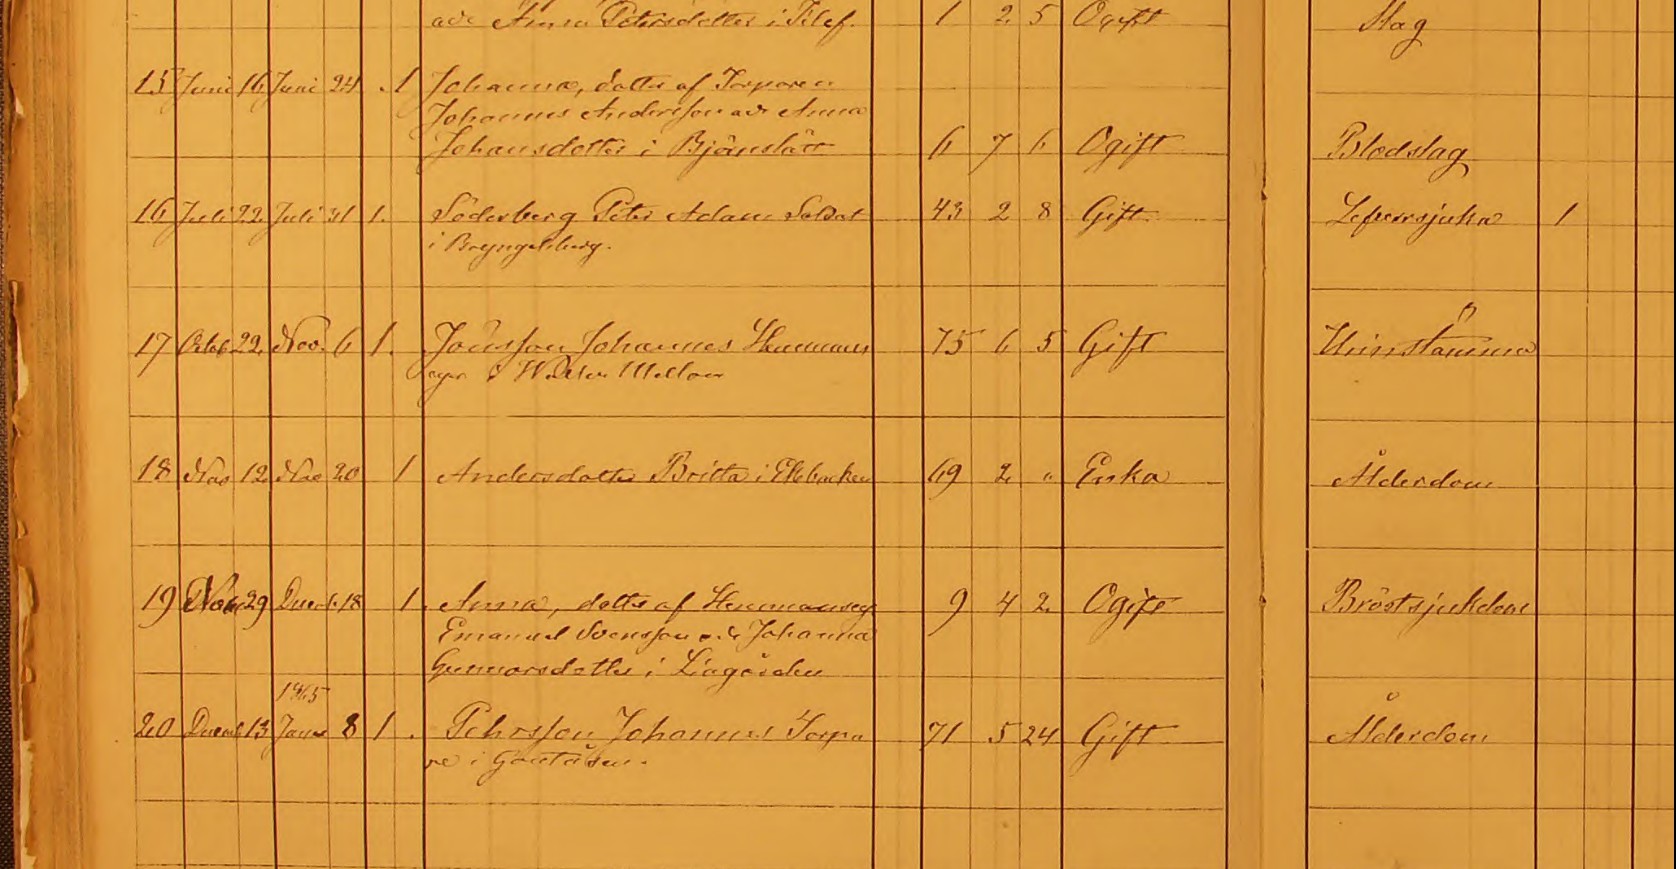 Anna Petersdotter i 1 2 5 Ogift Slag
15 Juni 16 Juni 24 . 1 Johanna, dotter af Torparen
Johannes Andersson Anna
Johansdotter i Björnslätt 6 7 6 Ogift Blodslag
16 Juli 22 Juli 31 1. Söderberg Peter Adam Soldat 43 2 8 Gift Lefversjuka 1
i
17 Octob 22. Nov. 6 1. Jönsson Johannes Hemmans 75 6 5 Gift Urinstämma
egar i Mellom
18 Nov 12 Nov 20 1 Andersdotter Britta i Ekbacken 69 2 " Enka Ålderdom
19 Nov 29 Decemb. 18 1. Anna, dotter af Hemmanseg 9 4 2 Ogift Bröstsjukdom
Emanuel Svensson Johanna
Gunnarsdotter i Liagården
1865
20 Decemb 13 Janu 8 1 . Pehrsson Johannes Torpa 71 5 24 Gift Ålderdom
re i